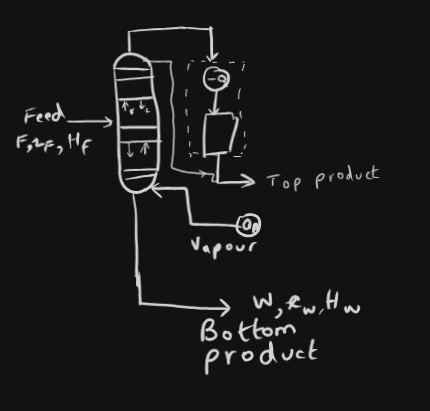 Feed
F, z_F, H_F
Top product
Vapour
W, x_w, H_w
Bottom
product